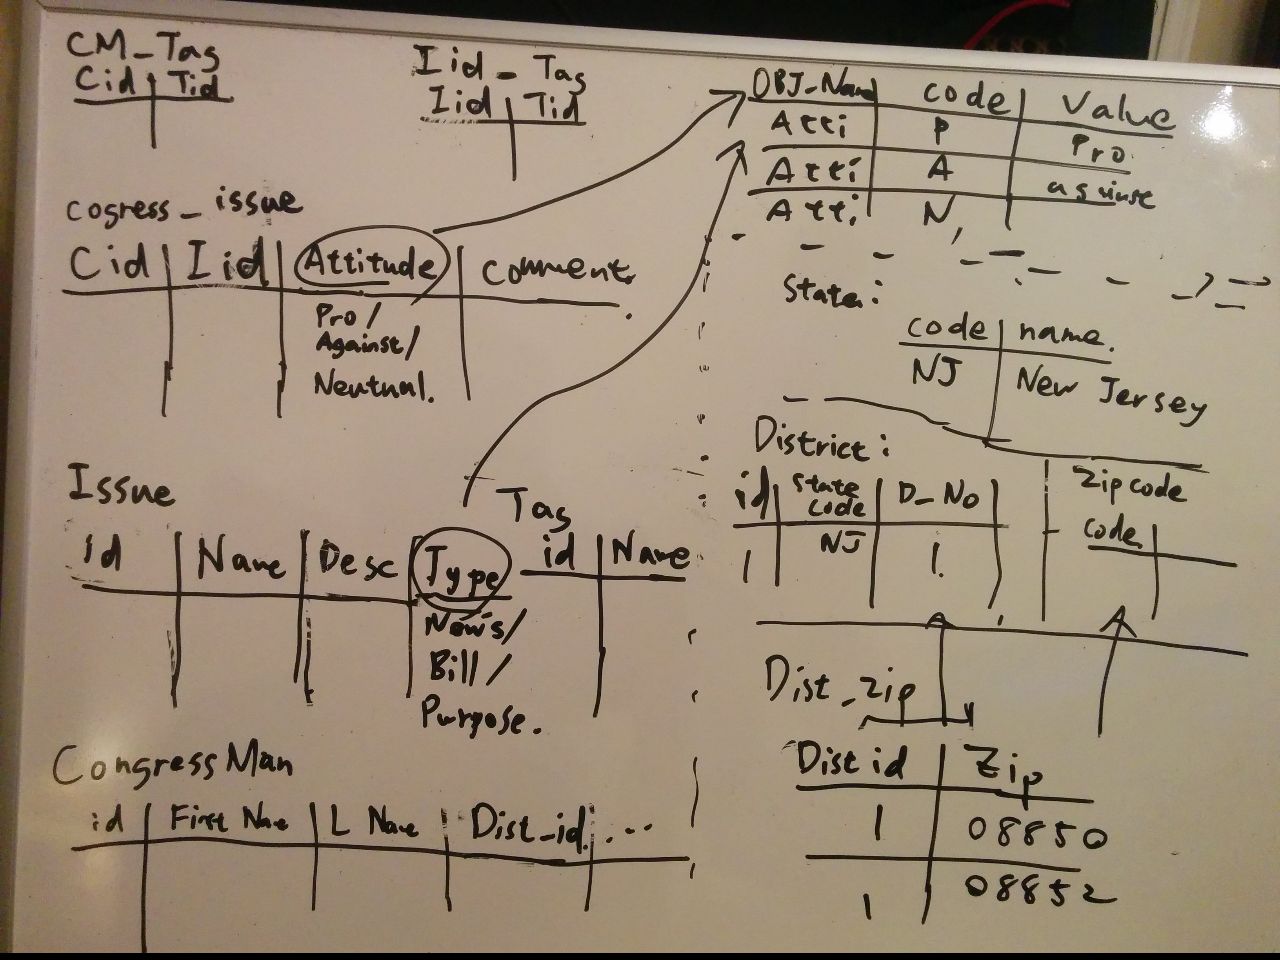 CM_Tag
Cid Tid
Iid_Tag
Iid Tid
cogress_issue
Cid Iid Attitude Comment.
Pro/
Against/
Neutual.
Issue
id Name Desc Type
News/
Bill/
Purpose.
Tag
id Name
CongressMan
id First Name L Name Dist_id ...
OBJ_Name code Value
Atti P Pro
Atti A
Atti N
State:
code name.
NJ New Jersey
District:
id State code D_No
1 NJ 1
Zipcode
code
Dist_zip
Dist id Zip
1 08850
1 08852